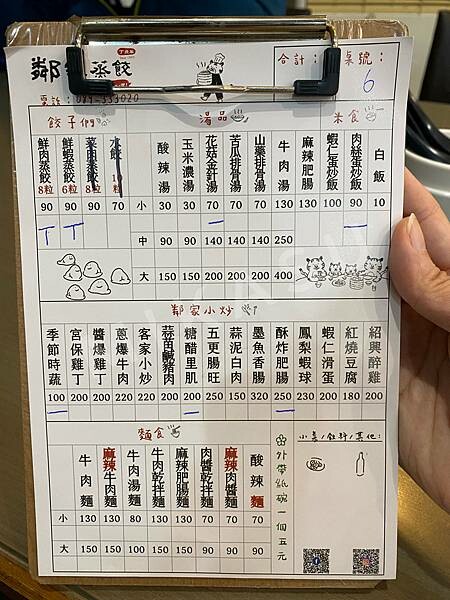 鄰家蒸餃
合計: 桌號: 6
電話:089-333020
餃子們 湯品 米食
鮮肉蒸餃8粒 鮮蝦蒸餃6粒 菜肉蒸餃8粒 水餃10粒 酸辣湯 玉米濃湯 花菇金針湯 苦瓜排骨湯 山藥排骨湯 牛肉湯 麻辣肥腸 蝦仁蛋炒飯 肉絲蛋炒飯 白飯
90 90 90 70 小 30 30 70 70 70 130 130 100 90 10
中 90 90 140 140 140 250
大 150 150 200 200 200 400
鄰家小炒
季節時蔬 宮保雞丁 醬爆雞丁 蔥爆牛肉 客家小炒 蒜苗鹹豬肉 糖醋里肌 五更腸旺 蒜泥白肉 墨魚香腸 酥炸肥腸 鳳梨蝦球 蝦仁滑蛋 紅燒豆腐 紹興醉雞
100 200 200 220 220 200 200 210 150 320 250 230 200 180 200
麵食
牛肉麵 麻辣牛肉麵 牛肉湯麵 牛肉乾拌麵 麻辣肥腸麵 肉醬乾拌麵 麻辣肉醬麵 酸辣麵
小 130 130 80 130 130 70 70 70
大 150 150 100 150 150 90 90 90
外帶紙碗一個五元
小菜/飲料/其他: